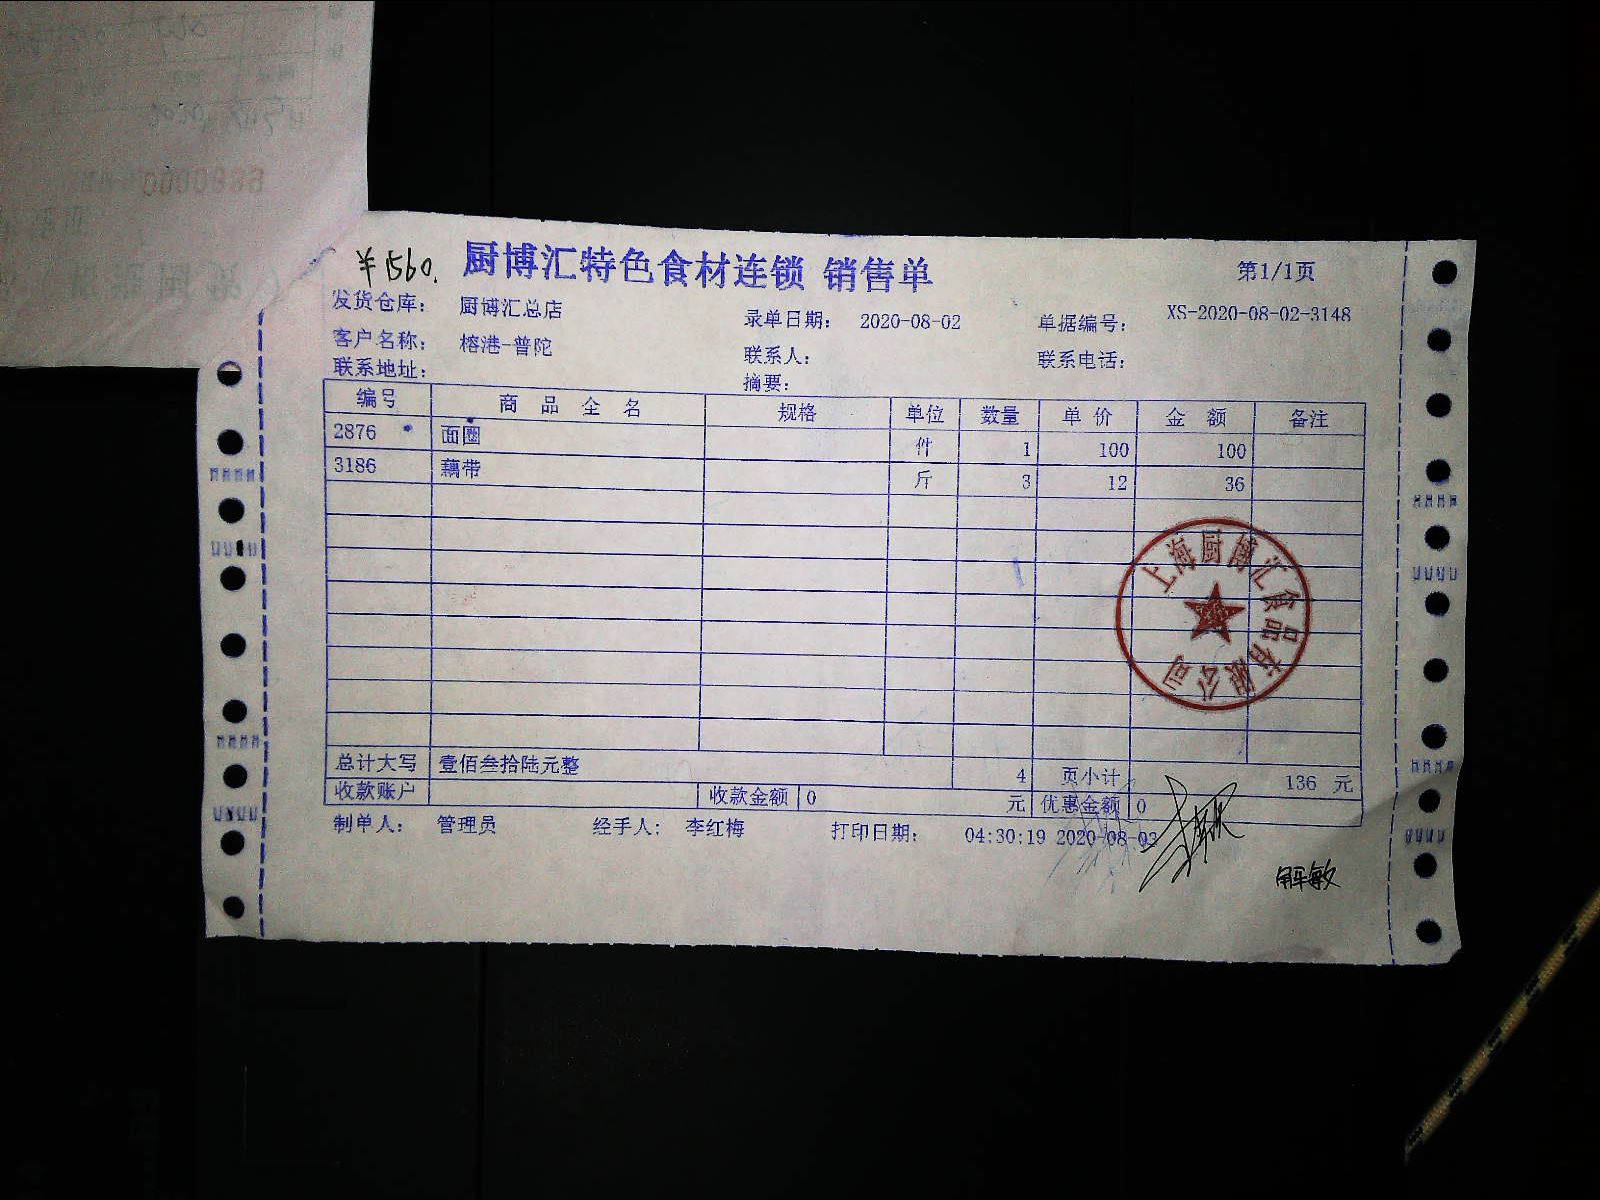 ¥560.
厨博汇特色食材连锁 销售单
第1/1页
发货仓库： 厨博汇总店 录单日期： 2020-08-02 单据编号： XS-2020-08-02-3148
客户名称： 榕港-普陀 联系人： 联系电话：
联系地址： 摘要：
编号 商 品 全 名 规格 单位 数量 单 价 金 额 备注
2876 面圈 件 1 100 100
3186 藕带 斤 3 12 36
上海厨博汇食品有限公司
总计大写 壹佰叁拾陆元整 4 页小计 136 元
收款账户 收款金额 0 元 优惠金额 0
制单人： 管理员 经手人： 李红梅 打印日期： 04:30:19 2020-08-03
解敏